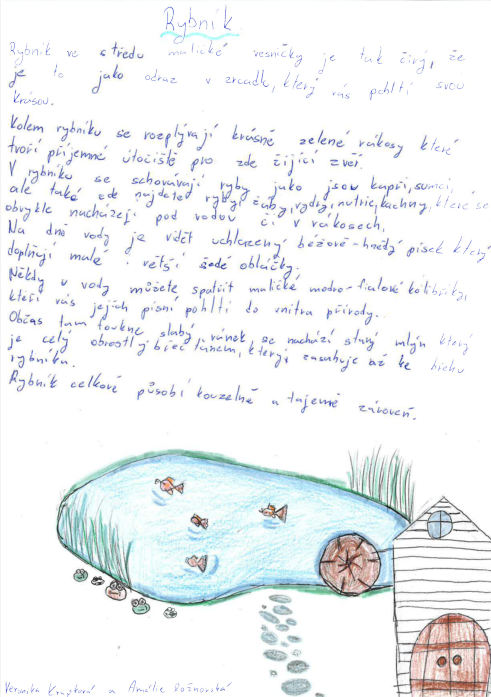 Rybník
Rybník ve středu maličké vesničky je tak čirý, že
je to jako odraz v zrcadle, který vás pohltí svou
krásou.
Kolem rybníku se rozeplývají krásné zelené rákosy které
tvoří příjemné útočiště pro zde žijící zvěř.
V rybníku se schovávají ryby jako jsou kapři, sumci,
ale také zde najdete rybky, žáby, vydry, nutrie, kachny, které se
obvykle nacházejí pod vodou či v rákosech.
Na dně vody je vidět uhlazený béžově-hnědý písek který
doplňují malé i větší šedé oblázky.
Někdy u vody můžete spatřit maličké modro-fialové kolibříky,
kteří vás jejich písní pohltí do vnitra přírody.
Občas tam foukne slabý vánek, se nachází starý mlýn který
je celý obrostlý břečťanem, který zasahuje až ke břehu
rybníku.
Rybník celkově působí kouzelně a tajemně zároveň.
Veronika a Amálie Rožnovská